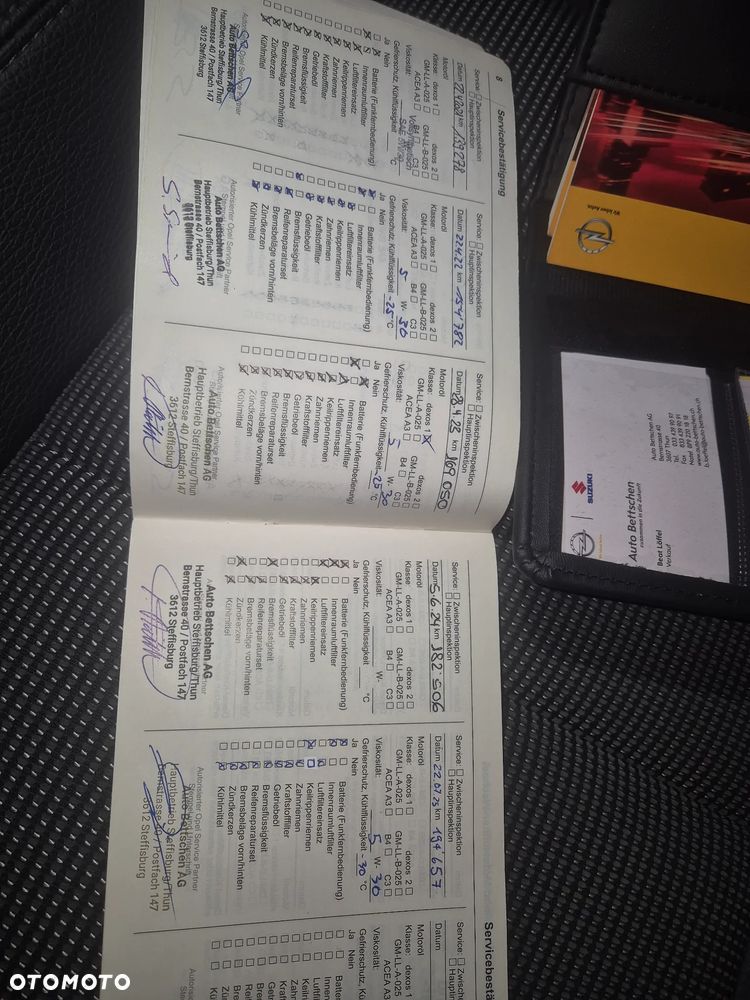 8 Servicebestätigung
Service: ☐ Zwischeninspektion
☐ Hauptinspektion
Datum km 139278
Motoröl
Klasse: dexos 1 ☐ dexos 2 ☐
GM-LL-A-025 ☐ GM-LL-B-025 ☐
ACEA A3 ☐ B4 ☐ C3 ☐
Viskosität:
Gefrierschutz, Kühlflüssigkeit °C
Ja Nein
Batterie (Funkfernbedienung)
Innenraumluftfilter
Luftfiltereinsatz
Keilrippenriemen
Zahnriemen
Kraftstofffilter
Getriebeöl
Bremsflüssigkeit
Reifenreparaturset
Bremsbeläge vorn/hinten
Zündkerzen
Kühlmittel
Autorisierter Opel Service Partner
Auto Bettschen AG
Hauptbetrieb Steffisburg/Thun
Bernstrasse 40 / Postfach 147
3612 Steffisburg
Service: ☐ Zwischeninspektion
☐ Hauptinspektion
Datum 22.4.22 km 154782
Motoröl
Klasse: dexos 1 ☐ dexos 2 ☐
GM-LL-A-025 ☐ GM-LL-B-025 ☐
ACEA A3 ☐ B4 ☐ C3 ☐
Viskosität: 5 W- 30
Gefrierschutz, Kühlflüssigkeit -25 °C
Ja Nein
Batterie (Funkfernbedienung)
Innenraumluftfilter
Luftfiltereinsatz
Keilrippenriemen
Zahnriemen
Kraftstofffilter
Getriebeöl
Bremsflüssigkeit
Reifenreparaturset
Bremsbeläge vorn/hinten
Zündkerzen
Kühlmittel
Autorisierter Opel Service Partner
Auto Bettschen AG
Hauptbetrieb Steffisburg/Thun
Bernstrasse 40 / Postfach 147
3612 Steffisburg
Service: ☐ Zwischeninspektion
☐ Hauptinspektion
Datum km 169050
Motoröl
Klasse: dexos 1 dexos 2 ☐
GM-LL-A-025 ☐ GM-LL-B-025 ☐
ACEA A3 ☐ B4 ☐ C3 ☐
Viskosität: 5 W- 30
Gefrierschutz, Kühlflüssigkeit -25 °C
Ja Nein
Batterie (Funkfernbedienung)
Innenraumluftfilter
Luftfiltereinsatz
Keilrippenriemen
Zahnriemen
Kraftstofffilter
Getriebeöl
Bremsflüssigkeit
Reifenreparaturset
Bremsbeläge vorn/hinten
Zündkerzen
Kühlmittel
Autorisierter Opel Service Partner
Auto Bettschen AG
Hauptbetrieb Steffisburg/Thun
Bernstrasse 40 / Postfach 147
3612 Steffisburg
Service: ☐ Zwischeninspektion
☐ Hauptinspektion
Datum 5.6.24 km 182'506
Motoröl
Klasse: dexos 1 ☐ dexos 2 ☐
GM-LL-A-025 ☐ GM-LL-B-025 ☐
ACEA A3 ☐ B4 ☐ C3 ☐
Viskosität: W-
Gefrierschutz, Kühlflüssigkeit °C
Ja Nein
Batterie (Funkfernbedienung)
Innenraumluftfilter
Luftfiltereinsatz
Keilrippenriemen
Zahnriemen
Kraftstofffilter
Getriebeöl
Bremsflüssigkeit
Reifenreparaturset
Bremsbeläge vorn/hinten
Zündkerzen
Kühlmittel
Auto Bettschen AG
Hauptbetrieb Steffisburg/Thun
Bernstrasse 40 / Postfach 147
3612 Steffisburg
Service: ☐ Zwischeninspektion
☐ Hauptinspektion
Datum 22.07.25 km 194'657
Motoröl
Klasse: dexos 1 ☐ dexos 2 ☐
GM-LL-A-025 ☐ GM-LL-B-025 ☐
ACEA A3 ☐ B4 ☐ C3 ☐
Viskosität: 5 W- 30
Gefrierschutz, Kühlflüssigkeit -40 °C
Ja Nein
Batterie (Funkfernbedienung)
Innenraumluftfilter
Luftfiltereinsatz
Keilrippenriemen
Zahnriemen
Kraftstofffilter
Getriebeöl
Bremsflüssigkeit
Reifenreparaturset
Bremsbeläge vorn/hinten
Zündkerzen
Kühlmittel
Autorisierter Opel Service Partner
Auto Bettschen AG
Hauptbetrieb Steffisburg/Thun
Bernstrasse 40 / Postfach 147
3612 Steffisburg
Servicebestä
Service: ☐ Zwisc
☐ Haupti
Datum
Motoröl
Klasse: dexos 1
GM-LL-A-02
ACEA A3
Viskosität:
Gefrierschutz, Kühlfl
Ja Nein
Batte
Innen
Luftfi
Keilri
Zahn
Kraft
Getri
Brem
Reife
Brem
Zünd
Küh
Autorisi
Wir leben Autos.
SUZUKI
Auto Bettschen
zusammen in die Zukunft
Beat Löffel
Verkauf
Auto Bettschen AG
Bernstrasse 40
3607 Thun
OTOMOTO